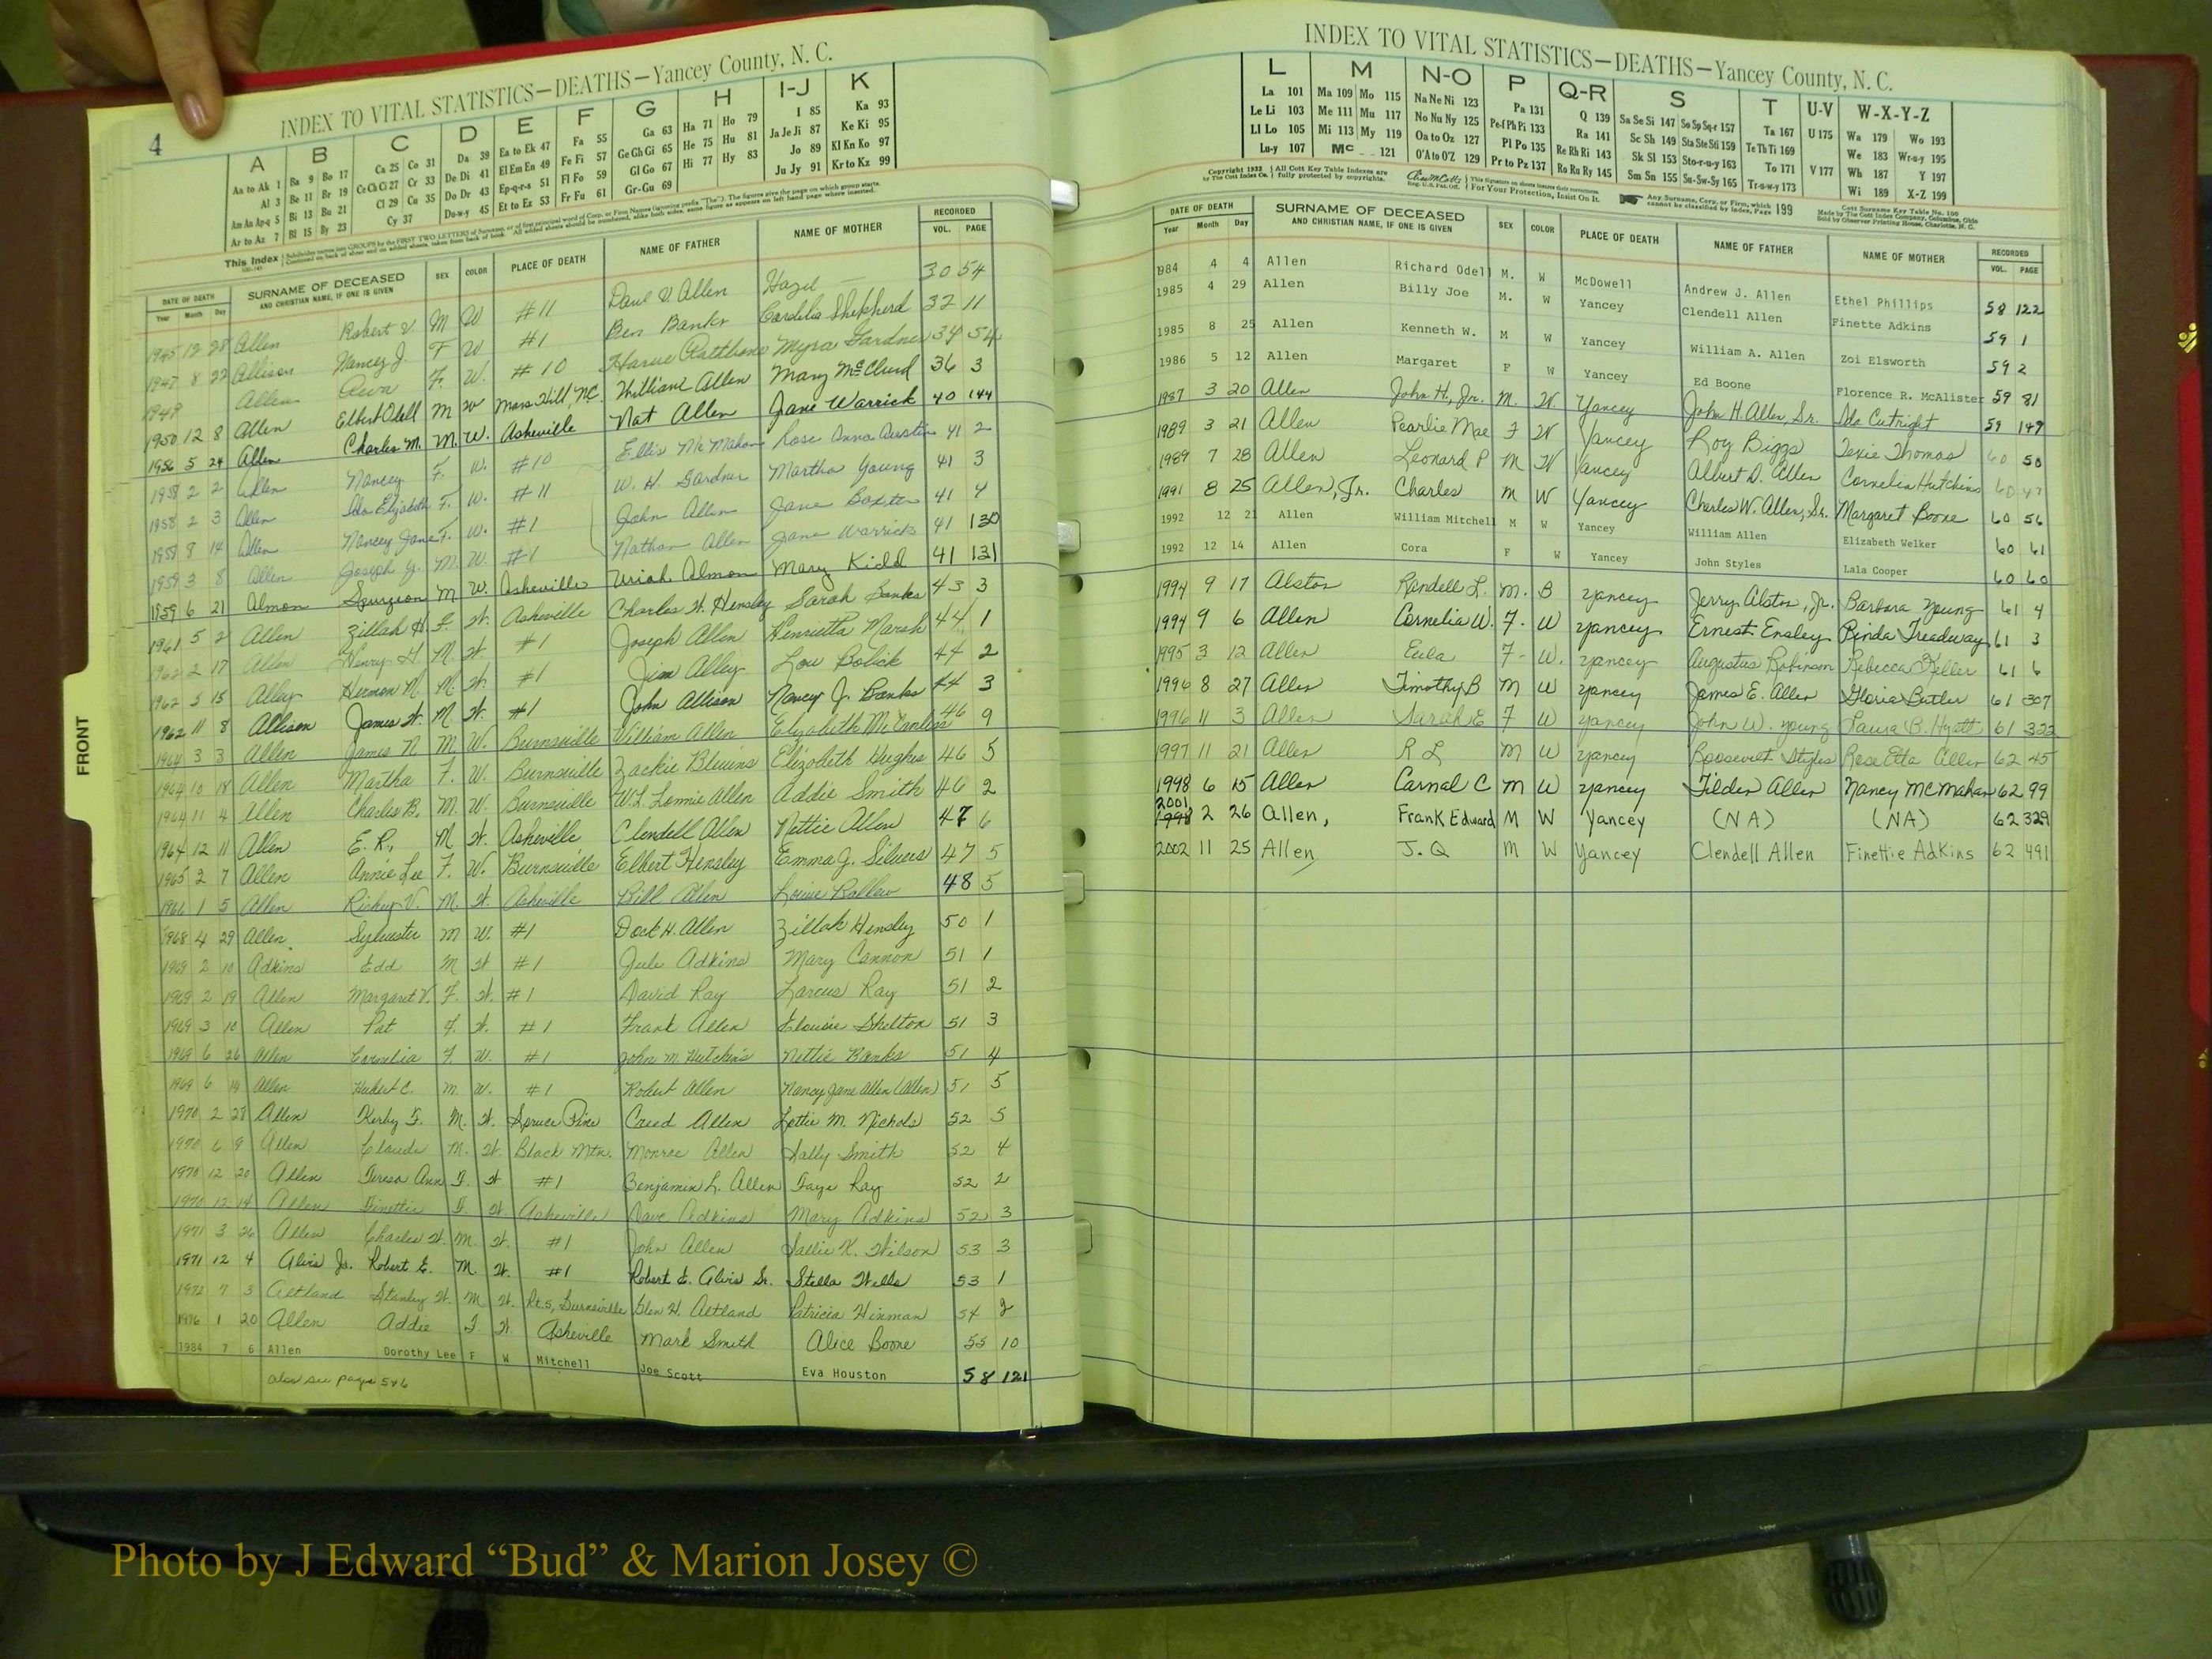 4
INDEX TO VITAL STATISTICS—DEATHS—Yancey County, N. C.
A B C D E F G H I-J K
Aa to Ak 1 Ba 9 Bo 17 Ca 25 Co 31 Da 39 Ea to Ek 47 Fa 55 Ga 63 Ha 71 Ho 79 I 85 Ka 93
Al 3 Be 11 Br 19 Ce Ch Ci 27 Cr 33 De Di 41 El Em En 49 Fe Fi 57 Ge Gh Gi 65 He 75 Hu 81 Ja Je Ji 87 Ke Ki 95
Am An Ap-q 5 Bi 13 Bu 21 Cl 29 Cu 35 Do Dr 43 Ep-q-r-s 51 Fl Fo 59 Gl Go 67 Hi 77 Hy 83 Jo 89 Kl Kn Ko 97
Ar to Az 7 Bl 15 By 23 Cy 37 Du-w-y 45 Et to Ez 53 Fr Fu 61 Gr-Gu 69 Ju Jy 91 Kr to Kz 99
This Index
DATE OF DEATH SURNAME OF DECEASED SEX COLOR PLACE OF DEATH NAME OF FATHER NAME OF MOTHER RECORDED
Year Month Day AND CHRISTIAN NAME, IF ONE IS GIVEN VOL. PAGE
1945 12 28 Allen Robert V. M W #11 Paul V. Allen Hazel 30 54
1947 8 22 Allison Nancy J. F W #1 Ben Banks Cordelia Shepherd 32 11
1949 Allen F. W. #10 Myra Gardner 34 54
1950 12 8 Allen Elbert Odell M W Mars Hill, NC. William Allen Mary McClurd 36 3
1956 5 24 Allen Charles M. M. W. Asheville Nat Allen Jane Warrick 40 144
1958 2 2 Allen Nancy F. W. #10 Ellis McMahan Rose Anna Austin 41 2
1958 2 3 Allen Ida Elizabeth F. W. #11 W. H. Gardner Martha Young 41 3
1958 8 14 Allen Nancy Jane F. W. #1 John Allen Jane Baxter 41 4
1959 3 8 Allen Joseph Y. M. W. #1 Nathan Allen Jane Warrick 41 130
1959 6 21 Almon Spurgeon M W. Asheville Uriah Almon Mary Kidd 41 131
1961 5 2 Allen Zillah H. F. W. Asheville Charles W. Hensley Sarah Banks 43 3
1962 2 17 Allen Henry H. M. W. #1 Joseph Allen Henrietta Marsh 44 1
1962 5 15 Alley Hermon N. M. W. #1 Jim Alley Lou Bolick 44 2
1962 11 8 Allison James W. M. W. #1 John Allison Nancy J. Banks 44 3
1964 3 3 Allen James N. M. W. Burnsville William Allen Elizabeth McCanless 46 9
1964 10 18 Allen Martha F. W. Burnsville Zackie Blevins Elizabeth Hughes 46 5
1964 11 4 Allen Charles B. M. W. Burnsville W.L. Lonnie Allen Addie Smith 46 2
1964 12 11 Allen E. R. M W. Asheville Clendell Allen Nettie Allen 47 6
1965 2 7 Allen Annie Lee F. W. Burnsville Elbert Hensley Emma J. Silvers 47 5
1966 1 5 Allen Rickey V. M. W. Asheville Bill Allen Louise Ballew 48 5
1968 4 29 Allen Sylvester M W. #1 Dock H. Allen Zillah Hensley 50 1
1969 2 10 Adkins Edd M W #1 Jule Adkins Mary Cannon 51 1
1969 2 19 Allen Margaret V. F. W. #1 David Ray Larcus Ray 51 2
1969 3 10 Allen Pat F. W. #1 Frank Allen Elouise Shelton 51 3
1969 6 26 Allen Cornelia F. W. #1 John M. Hutchins Nettie Banks 51 4
1969 6 19 Allen Hubert C. M. W. #1 Robert Allen Nancy Jane Allen (Allen) 51 5
1970 2 28 Allen Kerby F. M. W. Spruce Pine Creed Allen Lottie M. Nichols 52 5
1970 6 9 Allen Claude M. W. Black Mtn. Monroe Allen Sally Smith 52 4
1970 12 20 Allen Teresa Ann F. W #1 Benjamin L. Allen Faye Ray 52 2
1970 12 14 Allen Finettie F. W. Asheville Dave Adkins Mary Adkins 52 3
1971 3 26 Allen Charles W. M. W. #1 John Allen Sallie K. Wilson 53 3
1971 12 4 Alvis Jr. Robert E. M. W. #1 Robert E. Alvis Sr. Stella Wells 53 1
1972 7 3 Aetland Stanley W. M W. Rt. 5, Burnsville Glen H. Aetland Patricia Hinman 54 2
1976 1 20 Allen Addie F. W. Asheville Mark Smith Alice Boone 55 10
1984 7 6 Allen Dorothy Lee F W Mitchell Joe Scott Eva Houston 58 121
also see page 5+6
FRONT
INDEX TO VITAL STATISTICS—DEATHS—Yancey County, N. C.
L M N-O P Q-R S T U-V W-X-Y-Z
La 101 Ma 109 Mo 115 Na Ne Ni 123 Pa 131 Q 139 Sa Se Si 147 So Sp Sq-r 157 Ta 167 U 175 Wa 179 Wo 193
Le Li 103 Me 111 Mu 117 No Nu Ny 125 Pe-f Ph Pi 133 Ra 141 Sc Sh 149 Sta Ste Sti 159 Te Th Ti 169 We 183 Wr-u-y 195
Ll Lo 105 Mi 113 My 119 Oa to Oz 127 Pl Po 135 Re Rh Ri 143 Sk Sl 153 Sto-r-u-y 163 To 171 V 177 Wh 187 Y 197
Lu-y 107 Mc 121 O'A to O'Z 129 Pr to Pz 137 Ro Ru Ry 145 Sm Sn 155 Su-Sw-Sy 165 Tr-u-w-y 173 Wi 189 X-Z 199
Copyright 1932 by The Cott Index Co. All Cott Key Table Indexes are fully protected by copyrights. For Your Protection, Insist On It. Any Surname, Corp. or Firm, which cannot be classified by Index, Page 199 Cott Surname Key Table No. 100 Made by The Cott Index Company, Columbus, Ohio Sold by Observer Printing House, Charlotte, N. C.
DATE OF DEATH SURNAME OF DECEASED SEX COLOR PLACE OF DEATH NAME OF FATHER NAME OF MOTHER RECORDED
Year Month Day AND CHRISTIAN NAME, IF ONE IS GIVEN VOL. PAGE
1984 4 4 Allen Richard Odell M. W McDowell Andrew J. Allen Ethel Phillips 58 122
1985 4 29 Allen Billy Joe M. W Yancey Clendell Allen Finette Adkins 59 1
1985 8 25 Allen Kenneth W. M W Yancey William A. Allen Zoi Elsworth 59 2
1986 5 12 Allen Margaret F W Yancey Ed Boone Florence R. McAlister 59 81
1987 3 20 Allen John H., Jr. M. W. Yancey John H. Allen, Sr. Ida Cutright 59 147
1989 3 21 Allen Pearlie Mae F W Yancey Roy Biggs Texie Thomas 60 50
1989 7 28 Allen Leonard P M W Yancey Albert D. Allen Cornelia Hutchins 60 47
1991 8 25 Allen, Jr. Charles M W Yancey Charles W. Allen, Sr. Margaret Boone 60 56
1992 12 21 Allen William Mitchell M W Yancey William Allen Elizabeth Welker 60 61
1992 12 14 Allen Cora F W Yancey John Styles Lala Cooper 60 60
1994 9 17 Alston Randell L. M. B Yancey Jerry Alston, Jr. Barbara Young 61 4
1994 9 6 Allen Cornelia W. F. W Yancey Ernest Ensley Rinda Treadway 61 3
1995 3 12 Allen Eula F- W. Yancey Augustus Robinson Rebecca Keller 61 6
1996 8 27 Allen Timothy B M W Yancey James E. Allen Gloria Butler 61 307
1996 11 3 Allen Sarah E F W Yancey John W. Young Laura B. Hyatt 61 322
1997 11 21 Allen R L M W Yancey Roosevelt Styles Rose Etta Allen 62 45
1998 6 15 Allen Carnal C M W Yancey Tilden Allen Nancy McMahan 62 99
2001 1998 2 26 Allen, Frank Edward M W Yancey (NA) (NA) 62 329
2002 11 25 Allen, J.Q M W Yancey Clendell Allen Finettie Adkins 62 491
Photo by J Edward “Bud” & Marion Josey ©